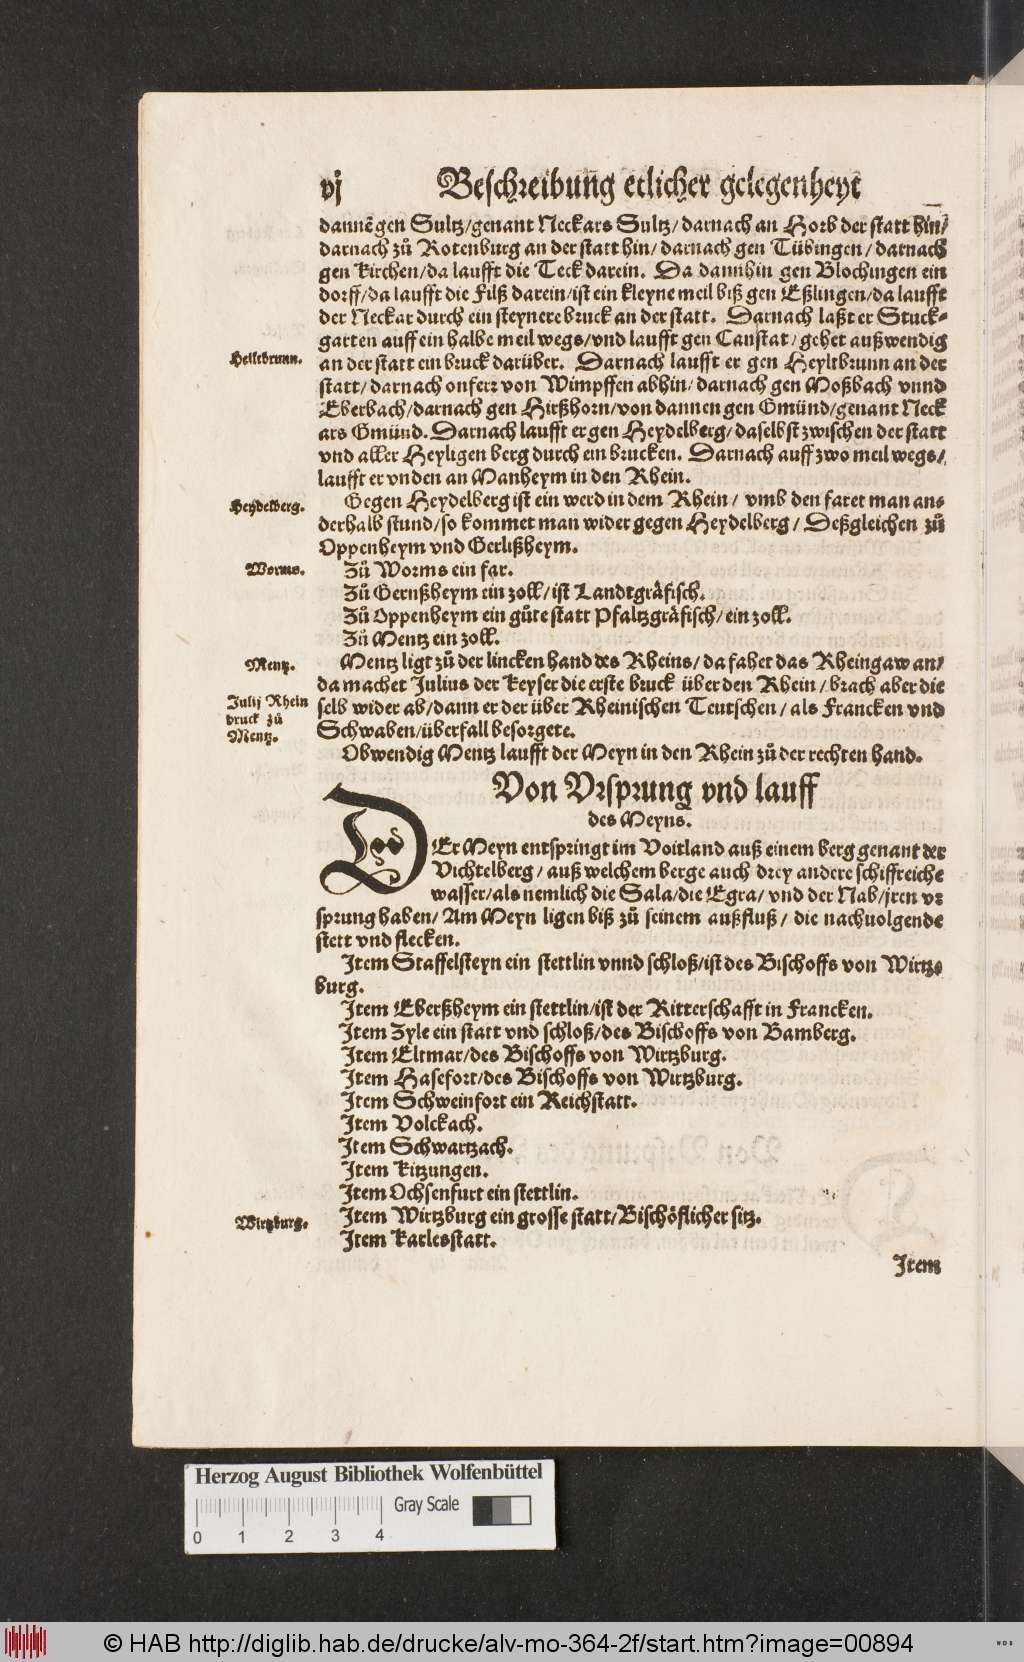 vj Beschreibung̃ etlicher gelegenheyt
dannẽ gen Sultz/genant Neckars Sultz/darnach an Horb der statt hin/
darnach zů Rotenburg an der statt hin/darnach gen Tübingen/darnach
gen Kirchen/da laufft die Teck darein. Da dannhin gen Blochingen ein
dorff/da laufft die Filß darein/ist ein kleyne meil biß gen Eßlingen/da laufft
der Neckar durch ein steynere bruck an der statt. Darnach laßt er Stuck-
garten auff ein halbe meil wegs/vnd laufft gen Canstat/gehet außwendig
Heilcbrunn.
an der statt ein bruck darüber. Darnach laufft er gen Heyltbrunn an der
statt/darnach onferz von Wimpffen abhin/darnach gen Moßbach vnnd
Eberbach/darnach gen Hirßhorn/von dannen gen Gmünd/genant Neck
ars Gmünd. Darnach laufft er gen Heydelberg/daselbst zwischen der statt
vnd aller Heyligen berg durch ein brucken. Darnach auff zwo meil wegs/
laufft er vnden an Manheym in den Rhein.
Heydelberg.
Gegen Heydelberg ist ein werd in dem Rhein/ vmb den faret man an-
derhalb stund/so kommet man wider gegen Heydelberg/ Deßgleichen zů
Oppenheym vnd Gerlißheym.
Worms.
Zů Worms ein far.
Zů Gernßheym ein zoll/ist Landtgräfisch.
Zů Oppenheym ein gůte statt Pfaltzgräfisch/ein zoll.
Zů Mentz ein zoll.
Mentz.
Mentz ligt zů der lincken hand des Rheins/da fahet das Rheingaw an/
da machet Julius der Keyser die erste bruck über den Rhein/brach aber die
Julij Rhein
bruck zů
Mentz.
selb wider ab/dann er der über Rheinischen Teutschen/als Francken vnd
Schwaben/überfall besorgete.
Obwendig Mentz laufft der Meyn in den Rhein zů der rechten hand.
Von Vrsprung vnd lauff
des Meyns.
DEr Meyn entspringt im Voitland auß einem berg genant der
Vichtelberg/auß welchem berge auch drey andere schiffreiche
wasser/als nemlich die Sala/die Egra/ vnd der Nab/jren vr
sprung haben/ Am Meyn ligen biß zů seinem außfluß/ die nachuolgende
stett vnd flecken.
Item Staffelsteyn ein stettlin vnnd schloß/ist des Bischoffs von Wirtz-
burg.
Item Eberßheym ein stettlin/ist der Ritterschafft in Francken.
Item Zyle ein statt vnd schloß/des Bischoffs von Bamberg.
Item Eltmar/des Bischoffs von Wirtzburg.
Item Hasefort/des Bischoffs von Wirtzburg.
Item Schweinfort ein Reichstatt.
Item Volckach.
Item Schwartzach.
Item Kitzungen.
Item Ochsenfurt ein stettlin.
Wirtzburg.
Item Wirtzburg ein grosse statt/Bischöflicher sitz.
Item Karlesstatt.
Item
Herzog August Bibliothek Wolfenbüttel
Gray Scale
0 1 2 3 4
© HAB http://diglib.hab.de/drucke/alv-mo-364-2f/start.htm?image=00894